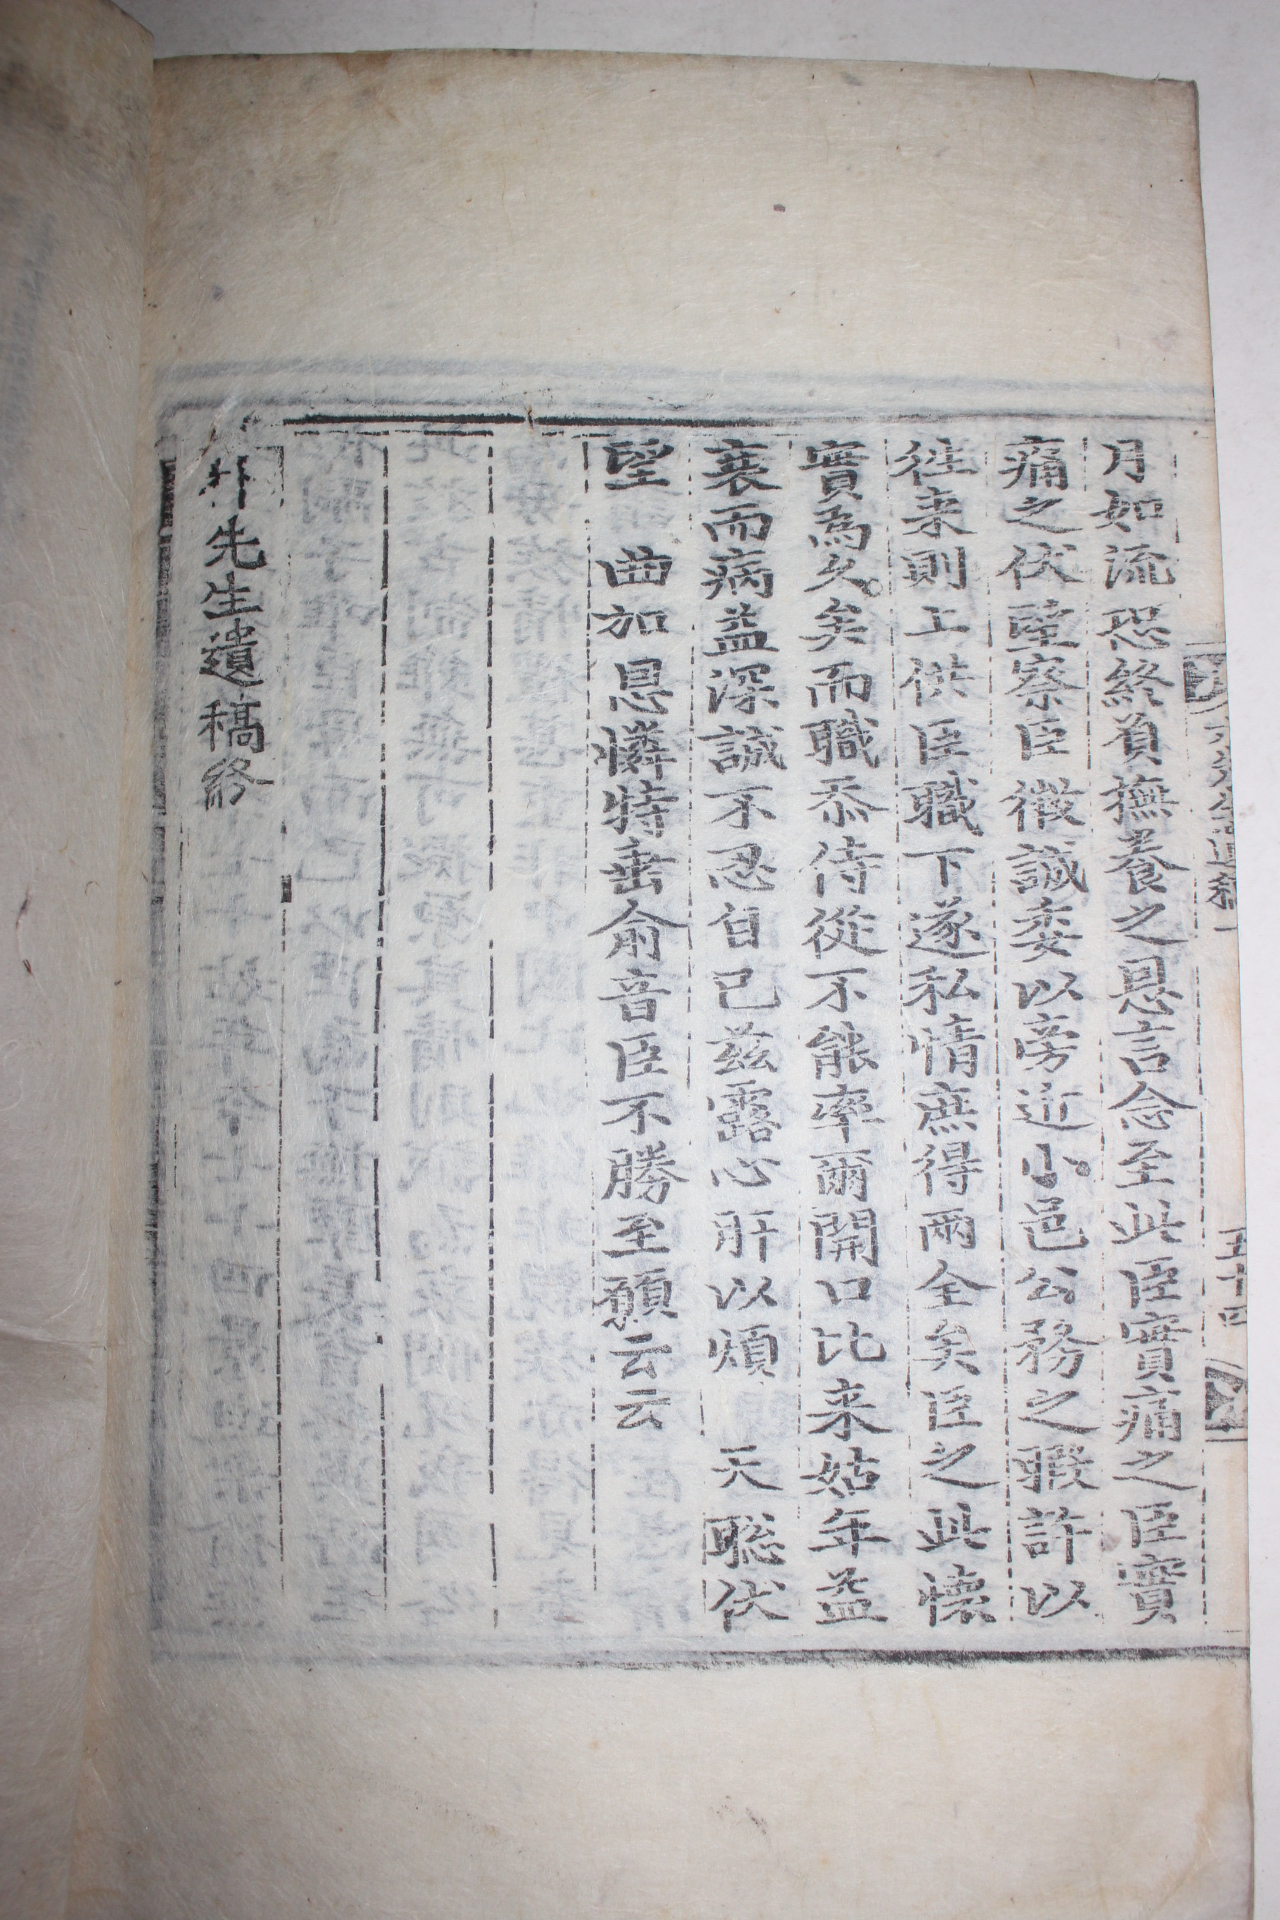 月如流恐終負撫養之恩言念至此臣實痛之臣實
痛之伏望察臣微誠委以旁近小邑公務之暇許以
往来則上供臣職下遂私情庶得兩全矣臣之此懷
實為久矣而職忝侍從不能率爾開口比来姑年益
衰而病益深誠不忍自已茲露心肝以煩 天聡伏
望 曲加恩憐特垂俞音臣不勝至願云云
先生遺稿終
五十四